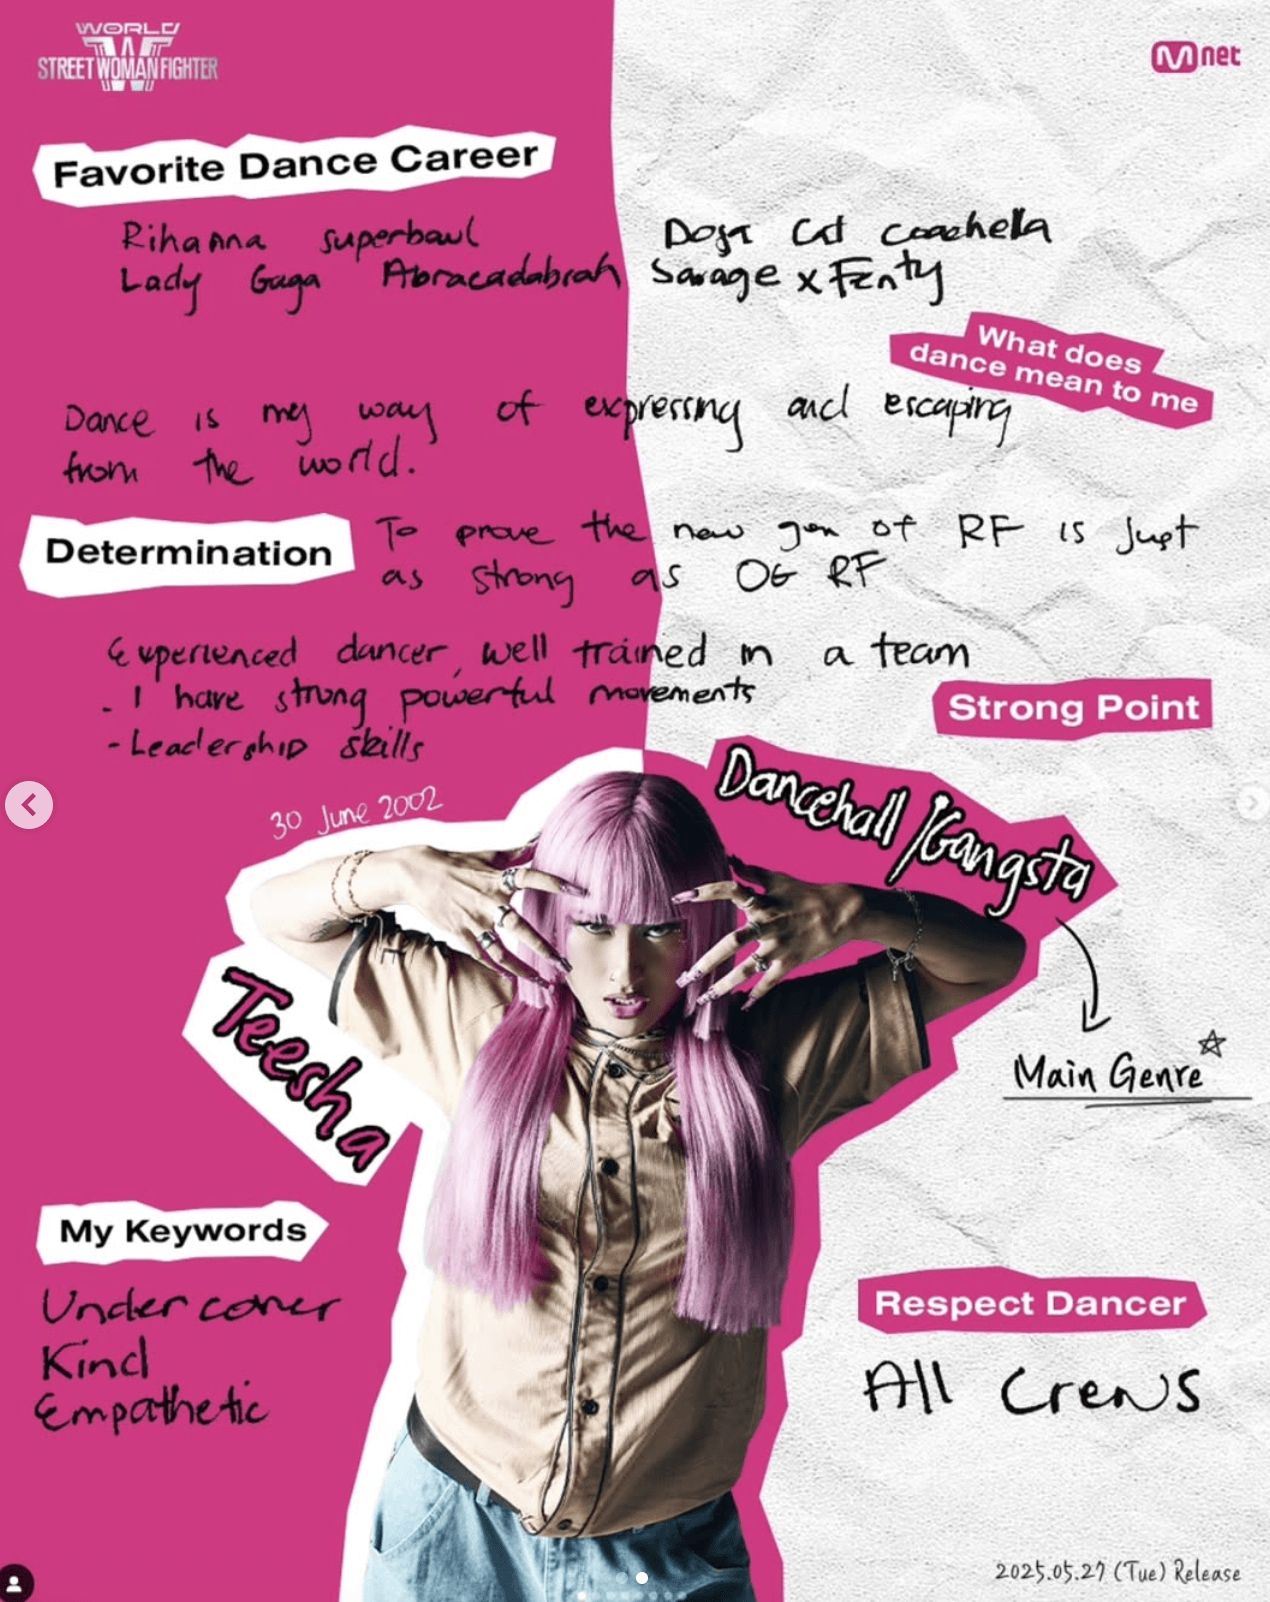 WORLD
W
STREET WOMAN FIGHTER
M net
Favorite Dance Career
Rihanna superbowl Doja Cat coachella
Lady Gaga Abracadabrah Savage x Fenty
What does
dance mean to me
Dance is my way of expressing and escaping
from the world.
Determination
To prove the new gen of RF is just
as strong as OG RF
Experienced dancer, well trained in a team
- I have strong powerful movements
- Leadership skills
Strong Point
30 June 2002
Dancehall / Gangsta
Main Genre
Teesha
My Keywords
Undercover
Kind
Empathetic
Respect Dancer
All Crews
2025.05.27 (Tue) Release